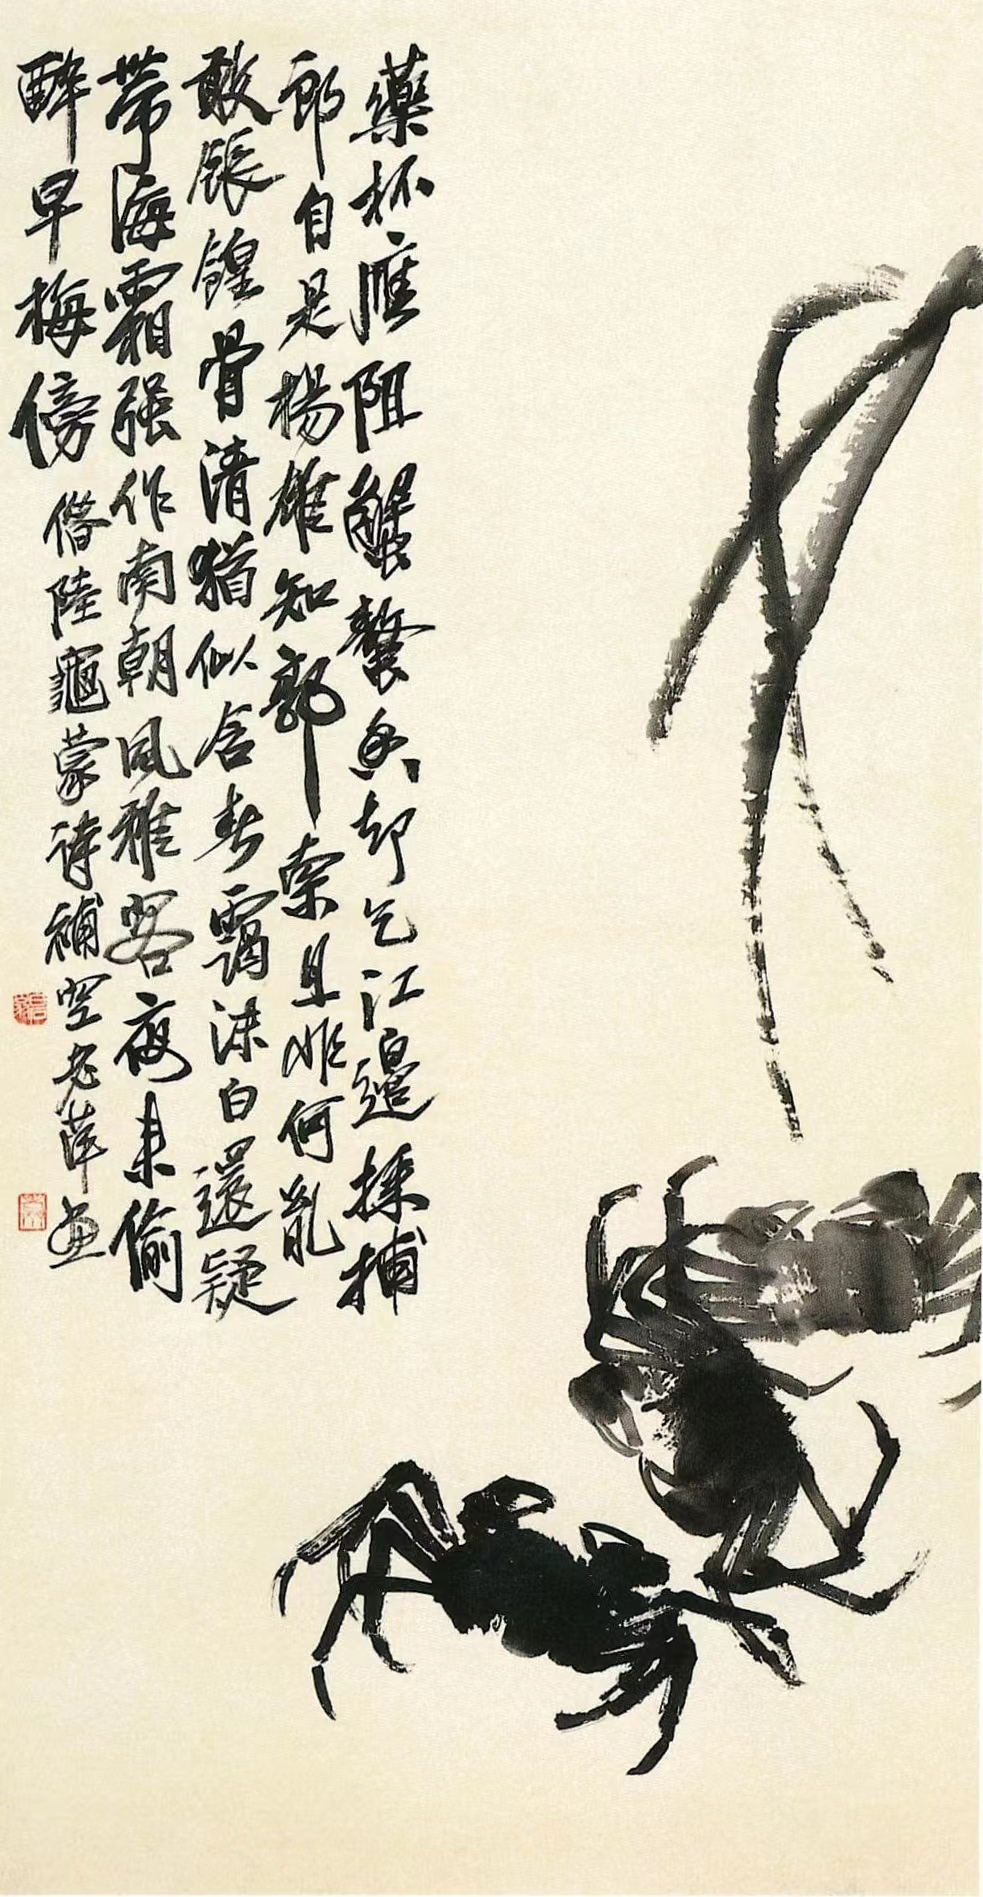 藥杯應阻蟹螯香却乞江邊採捕
郎自是楊雄知郭索且非何胤
敢餦餭骨清猶似含春靄沫白還疑
帶海霜强作南朝風雅客夜来偷
醉早梅傍 借陸龜蒙詩補空老萍畫